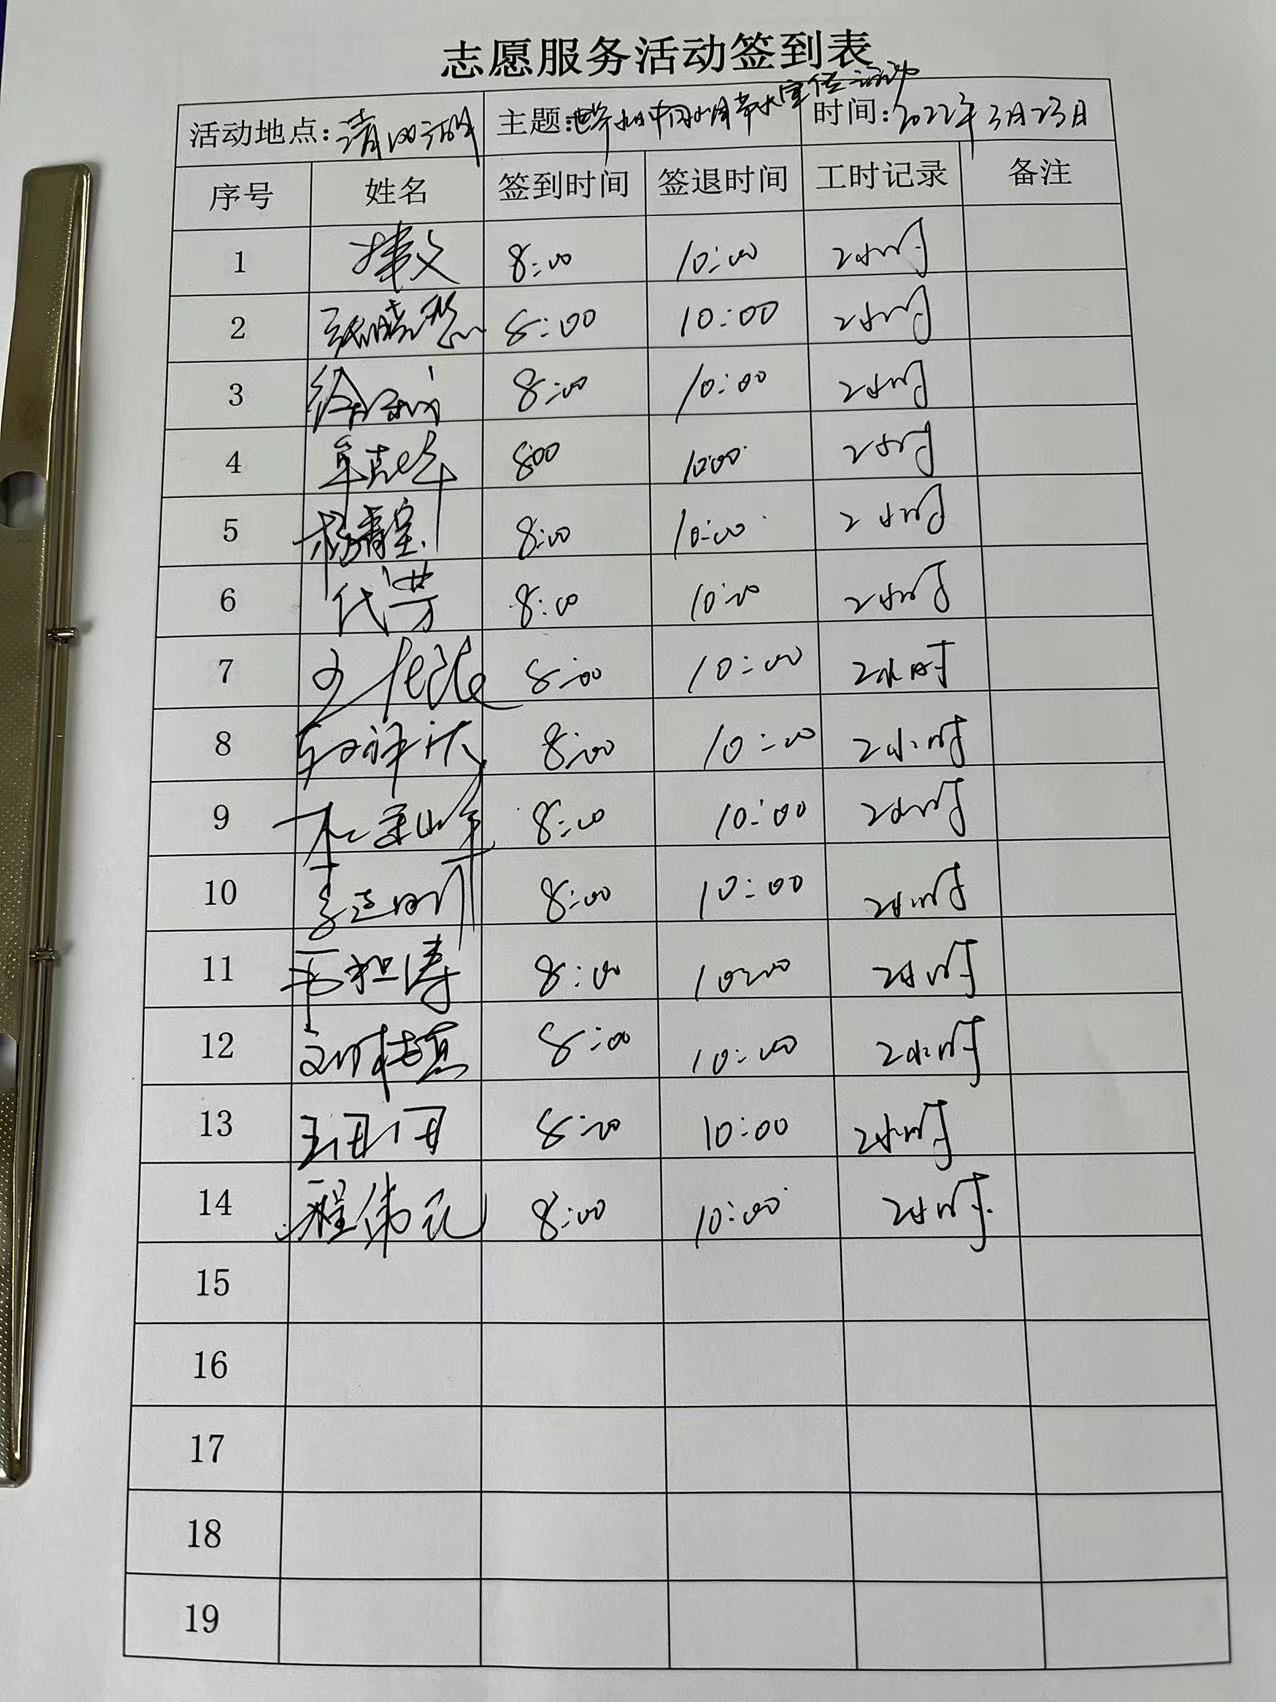 志愿服务活动签到表
活动地点: 主题:世界水日中国水周节水宣传活动 时间:2022年3月23日
序号 姓名 签到时间 签退时间 工时记录 备注
1 8:00 10:00 2小时
2 张晓慧 8:00 10:00 2小时
3 8:00 10:00 2小时
4 800 1000 2小时
5 杨青宝 8:00 10:00 2小时
6 代芳 8:00 10:00 2小时
7 8:00 10:00 2小时
8 8:00 10:00 2小时
9 8:00 10:00 2小时
10 8:00 10:00 2小时
11 8:00 10:00 2小时
12 8:00 10:00 2小时
13 王丹丹 8:00 10:00 2小时
14 程伟元 8:00 10:00 2小时
15
16
17
18
19